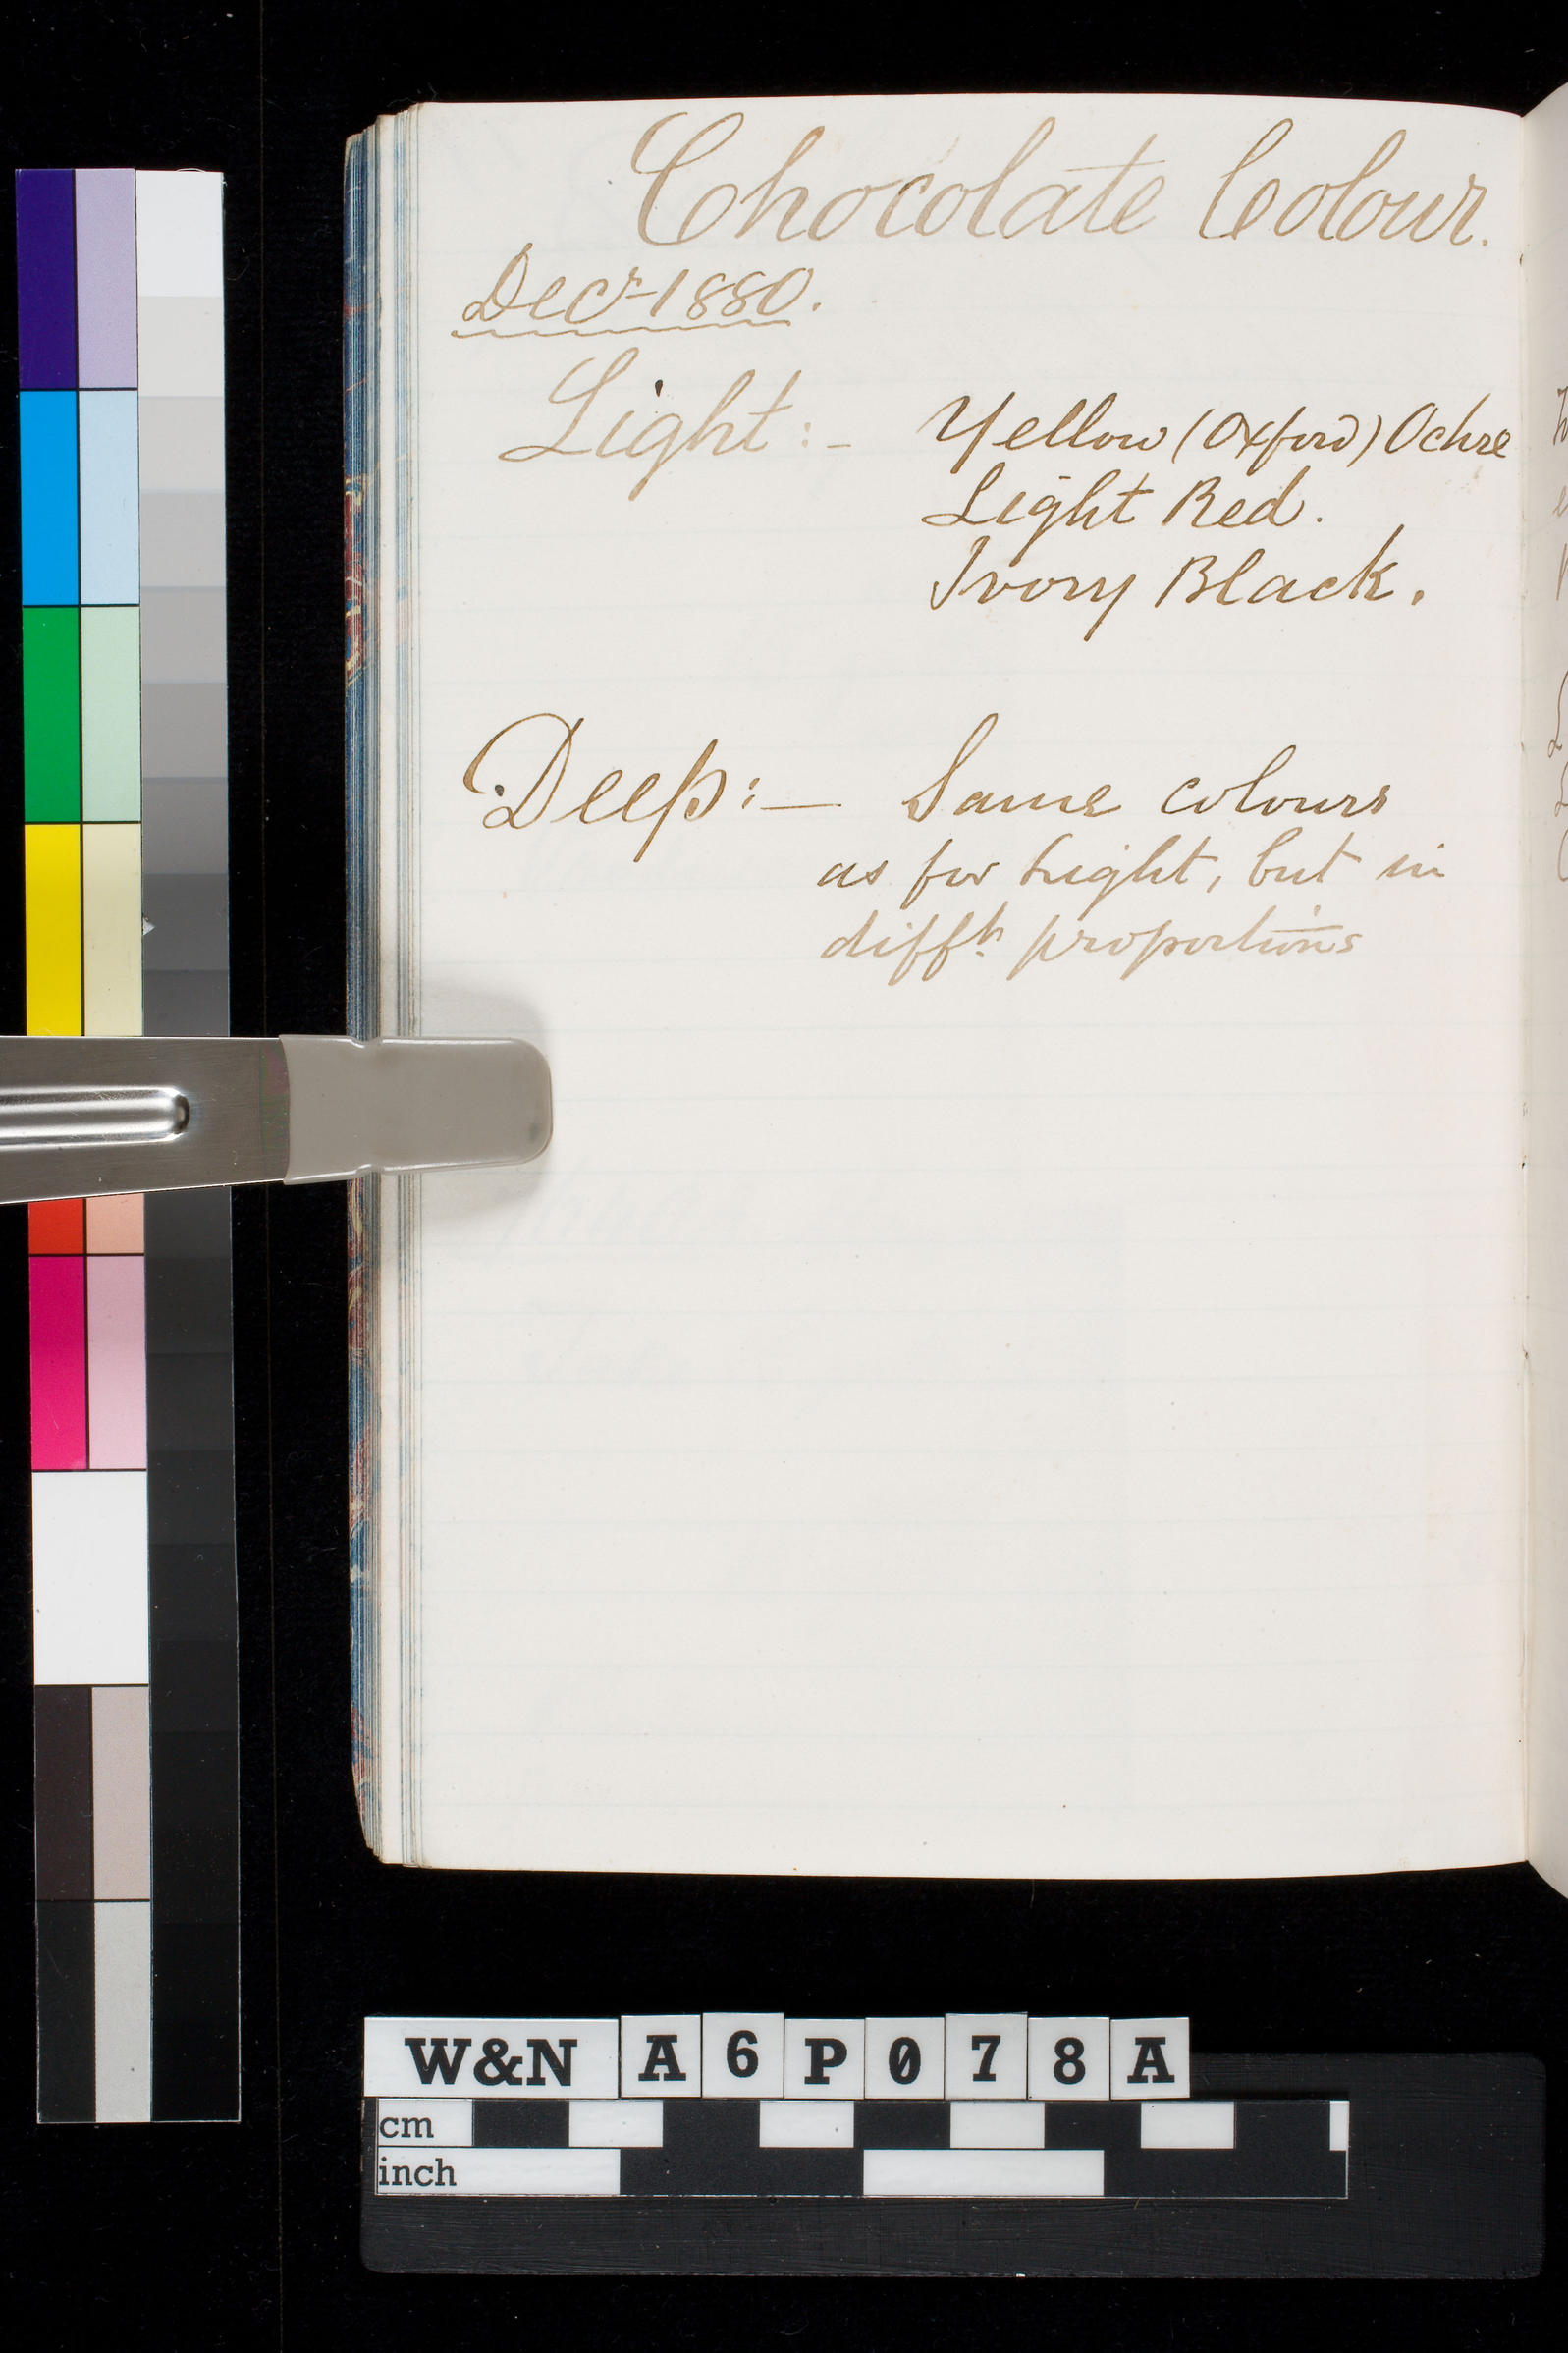 Chocolate Colour.
Decr 1880.
Light:- Yellow (Oxford) Ochre
Light Red.
Ivory Black.
Deep:— Same colours
as for Light, but in
difft. proportions
W&N A6P078A
cm
inch